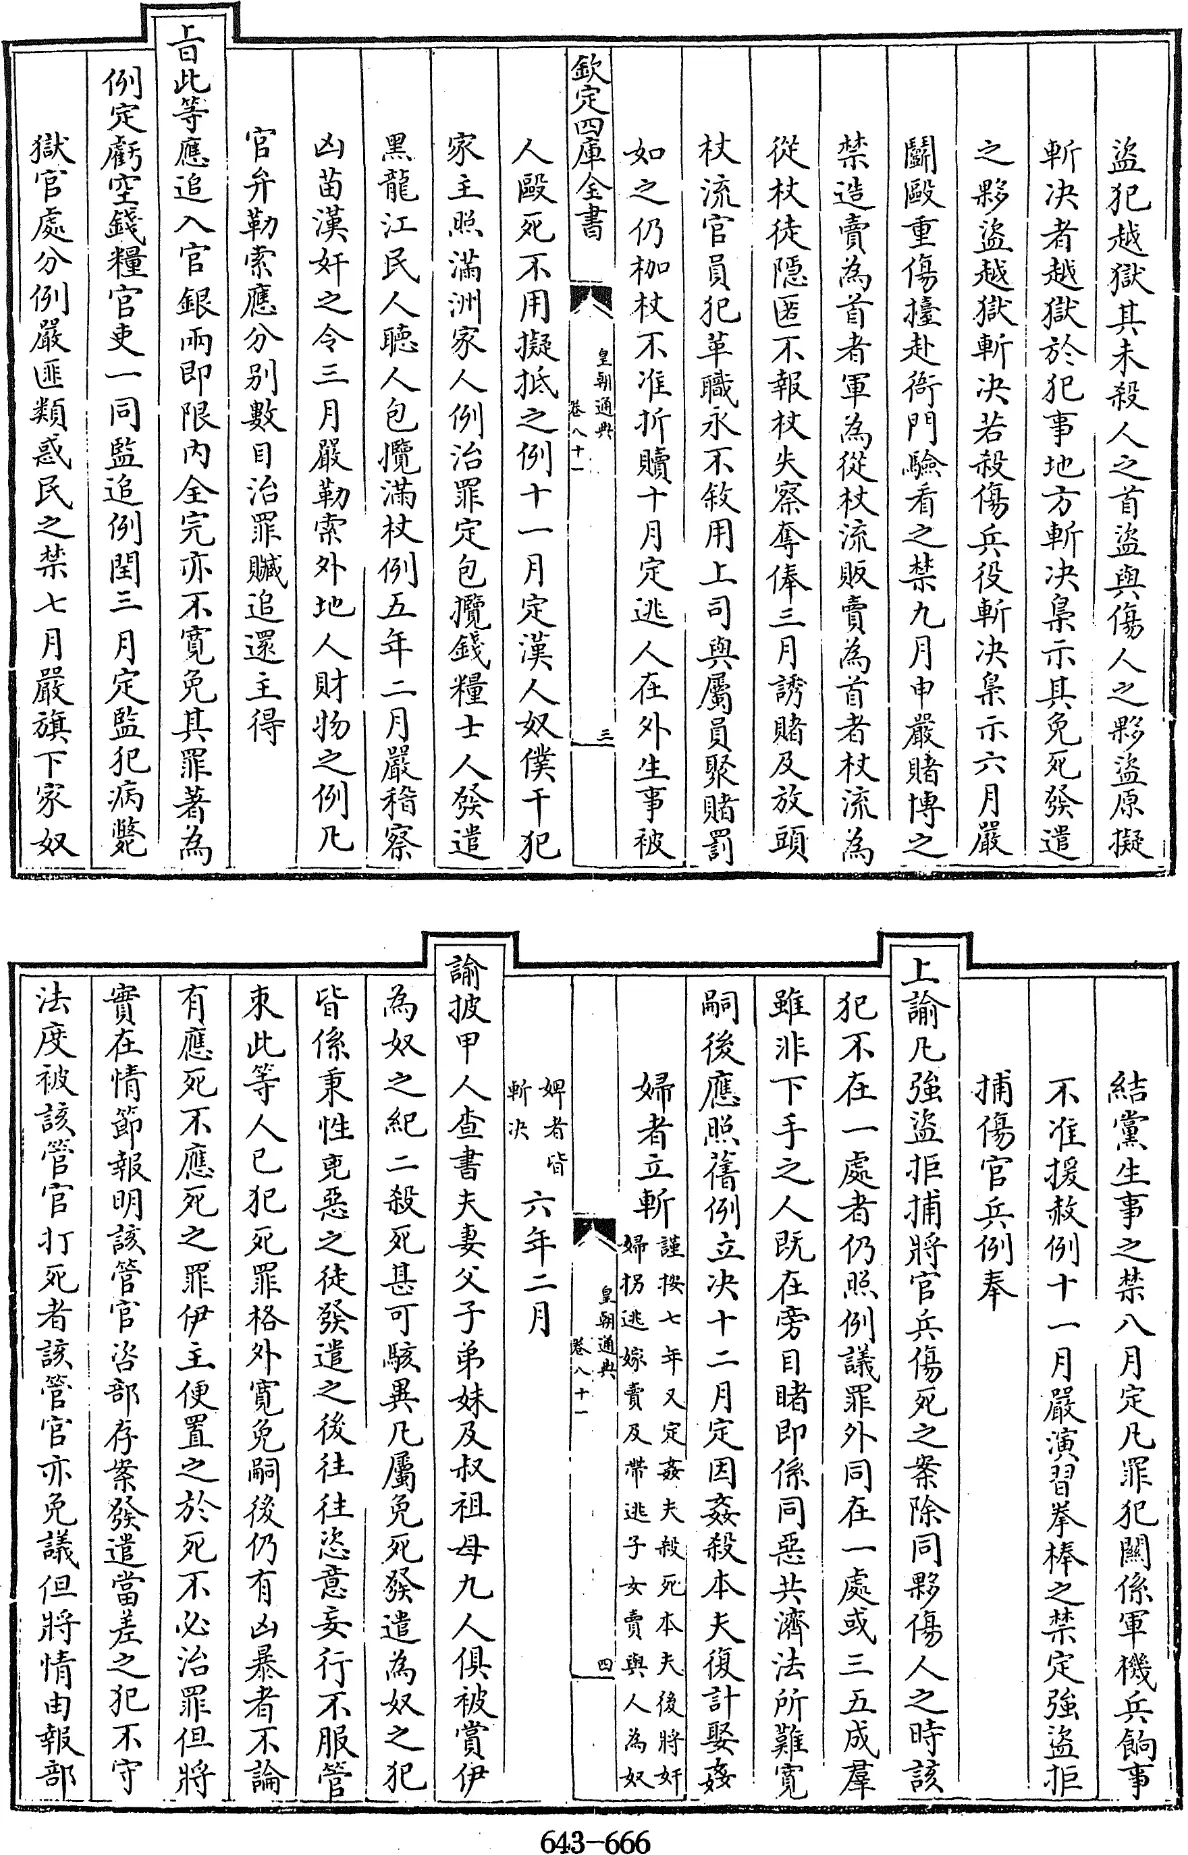 盜犯越獄其未殺人之首盜與傷人之夥盜原擬
斬决者越獄於犯事地方斬决梟示其免死發遣
之夥盜越獄斬决若殺傷兵役斬决梟示六月嚴
鬭毆重傷擡赴衙門驗看之禁九月申嚴賭博之
禁造賣為首者軍為從杖流販賣為首者杖流為
從杖徒隱匿不報杖失察奪俸三月誘賭及放頭
杖流官員犯革職永不敘用上司與屬員聚賭罰
如之仍枷杖不准折贖十月定逃人在外生事被
欽定四庫全書
皇朝通典
卷八十一
三
人毆死不用擬抵之例十一月定漢人奴僕干犯
家主照滿洲家人例治罪定包攬錢糧士人發遣
黑龍江民人聽人包攬滿杖例五年二月嚴稽察
凶苗漢奸之令三月嚴勒索外地人財物之例凡
官弁勒索應分别數目治罪贓追還主得
上㫖此等應追入官銀兩即限内全完亦不寛免其罪著為
例定虧空錢糧官吏一同監追例閏三月定監犯病斃
獄官處分例嚴匪類惑民之禁七月嚴旗下家奴
結黨生事之禁八月定凡罪犯關係軍機兵餉事
不准援赦例十一月嚴演習拳棒之禁定強盜拒
捕傷官兵例奉
上諭凡強盜拒捕將官兵傷死之案除同夥傷人之時該
犯不在一處者仍照例議罪外同在一處或三五成羣
雖非下手之人既在旁目睹即係同惡共濟法所難寛
嗣後應照舊例立决十二月定因姦殺本夫復計娶姦
婦者立斬
謹按七年又定姦夫殺死本夫後將奸
婦拐逃嫁賣及帶逃子女賣與人為奴
皇朝通典
卷八十一
四
婢者皆
斬决
六年二月
諭披甲人查書夫妻父子弟妹及叔祖母九人俱被賞伊
為奴之紀二殺死甚可駭異凡屬免死發遣為奴之犯
皆係秉性兇惡之徒發遣之後往往恣意妄行不服管
束此等人已犯死罪格外寛免嗣後仍有凶暴者不論
有應死不應死之罪伊主便置之於死不必治罪但將
實在情節報明該管官咨部存案發遣當差之犯不守
法度被該管官打死者該管官亦免議但將情由報部
643-666